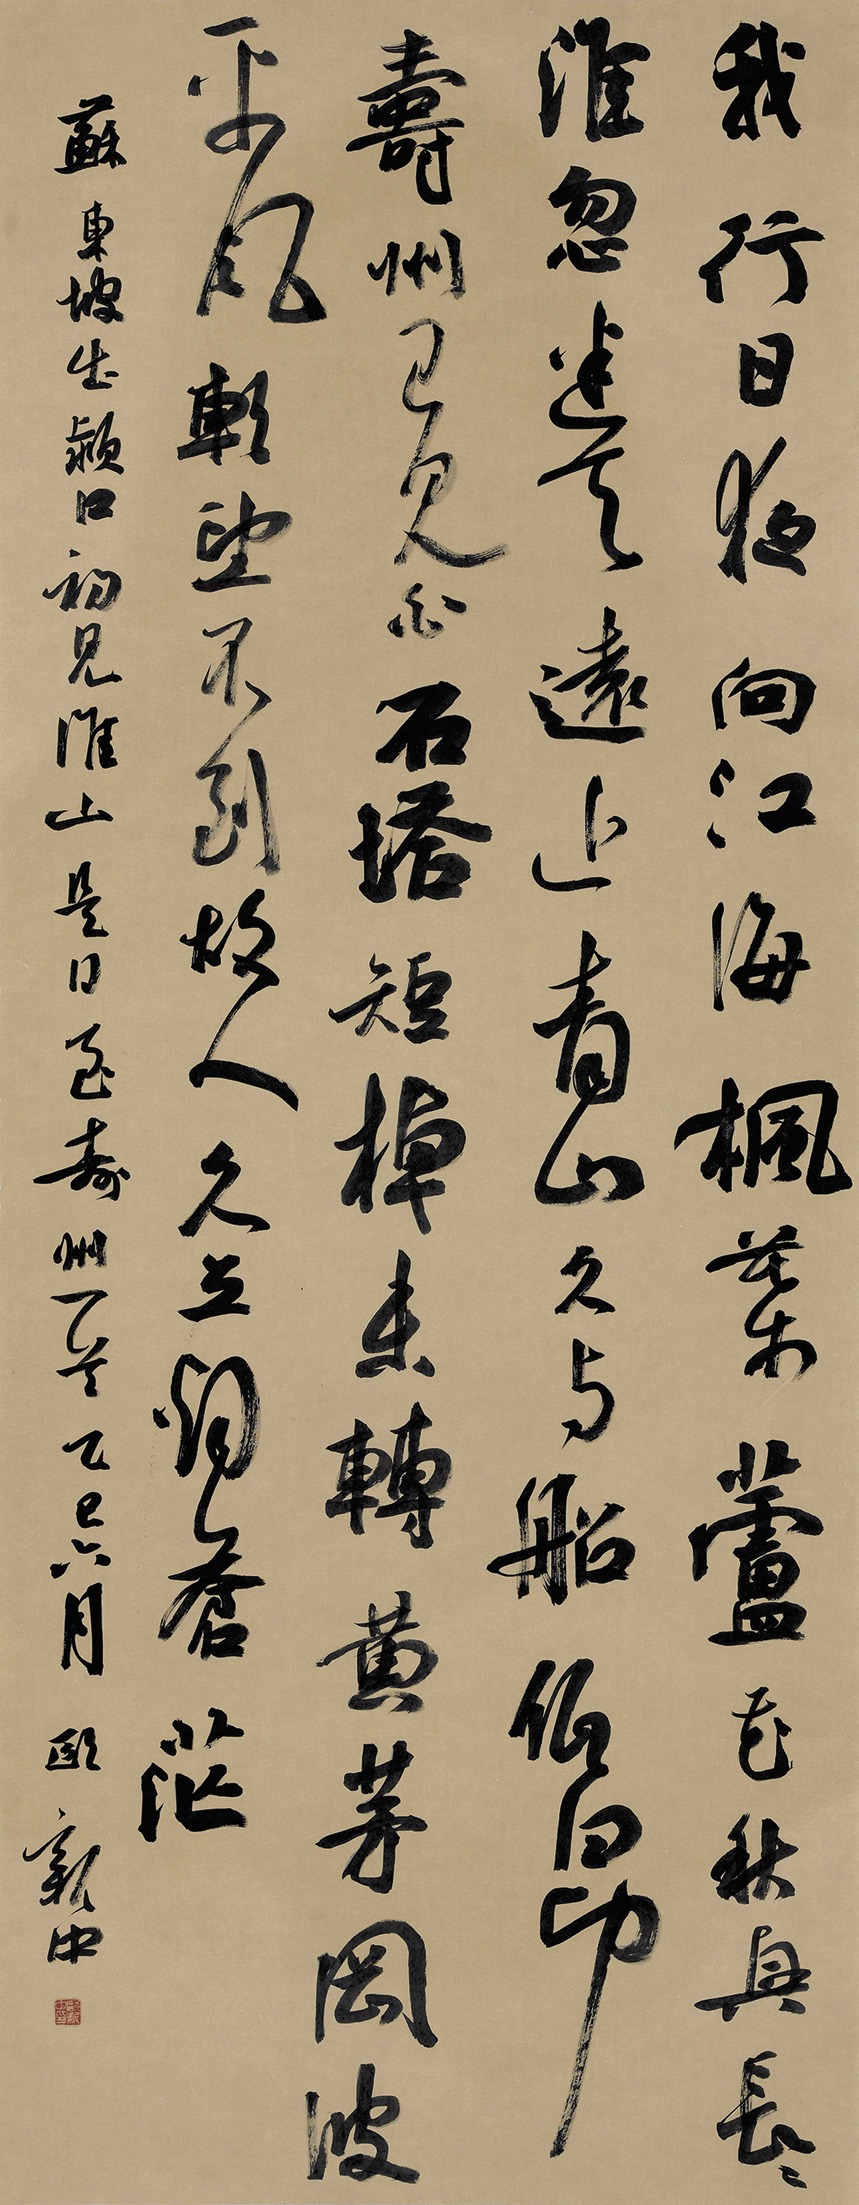 我行日夜向江海楓葉蘆花秋興長々
淮忽迷天遠近青山久与船低昂
壽州已見白石塔短棹未轉黃茅岡波
平風軟望不到故人久立烟蒼茫
蘇東坡出潁口初見淮山是日至壽州一首乙巳六月 歐新中